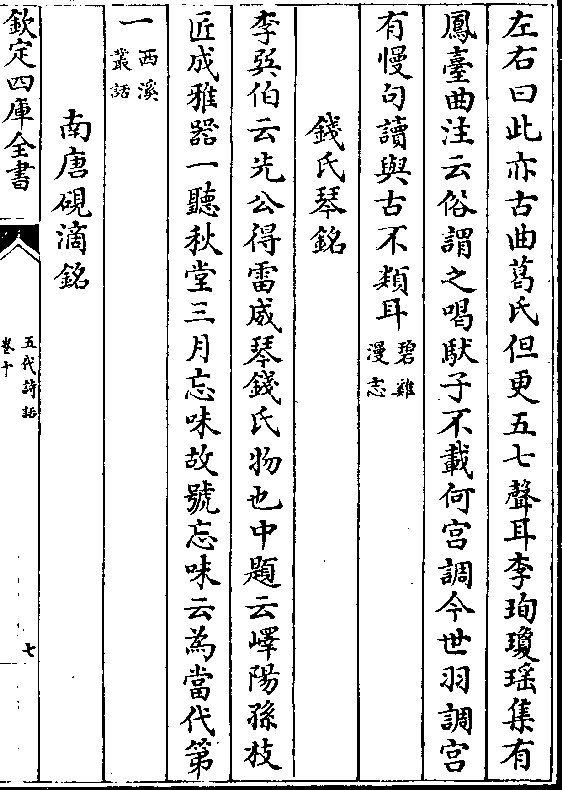 左右曰此亦古曲葛氏但更五七聲耳李珣瓊瑤集有
鳳臺曲注云俗謂之喝馱子不載何宫調今世羽調宫
有慢句讀與古不類耳碧雞漫志
錢氏琴銘
李巽伯云先公得雷威琴錢氏物也中題云嶧陽孫枝
匠成雅器一聽秋堂三月忘味故號忘味云為當代第
一西溪叢話
南唐硯滴銘
欽定四庫全書
五代詩話
卷十
七